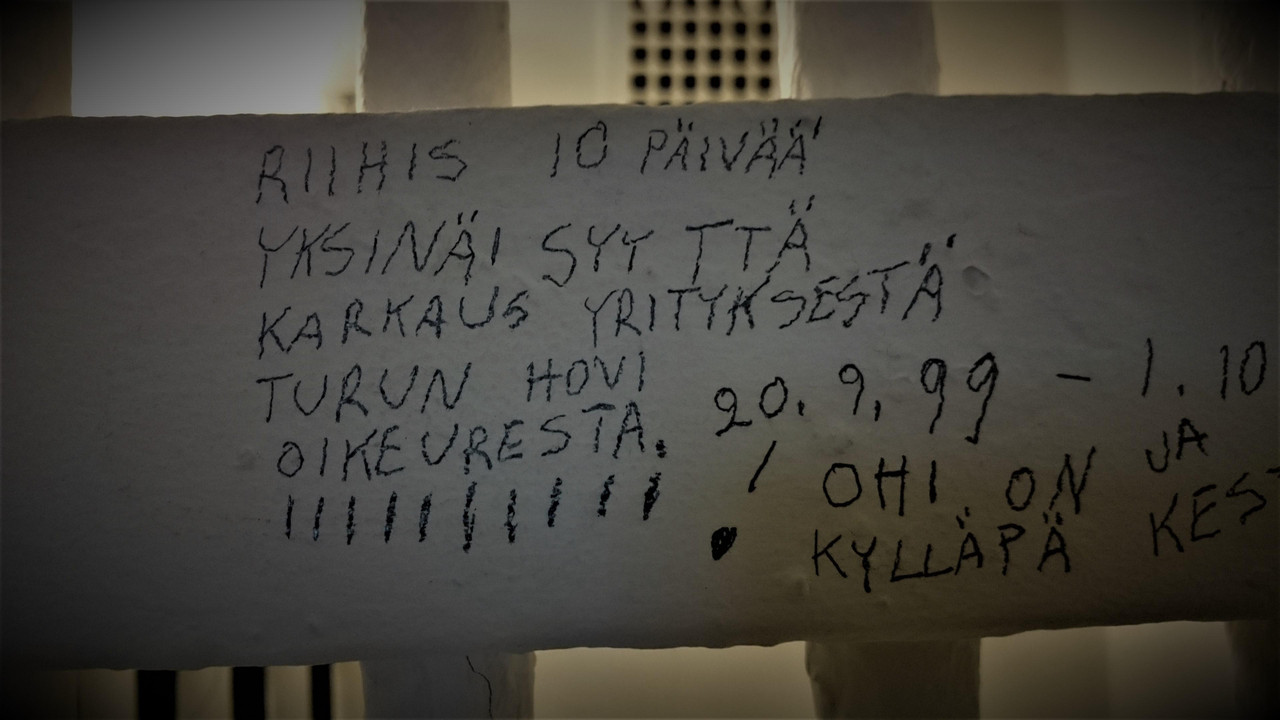 RIIHIS 10 PÄIVÄÄ
YKSINÄI SYYTTÄ
KARKAUS YRITYKSESTÄ
TURUN HOVI
OIKEURESTA.
20.9.99 - 1.10
! OHI ON JA
KYLLÄPÄ KEST